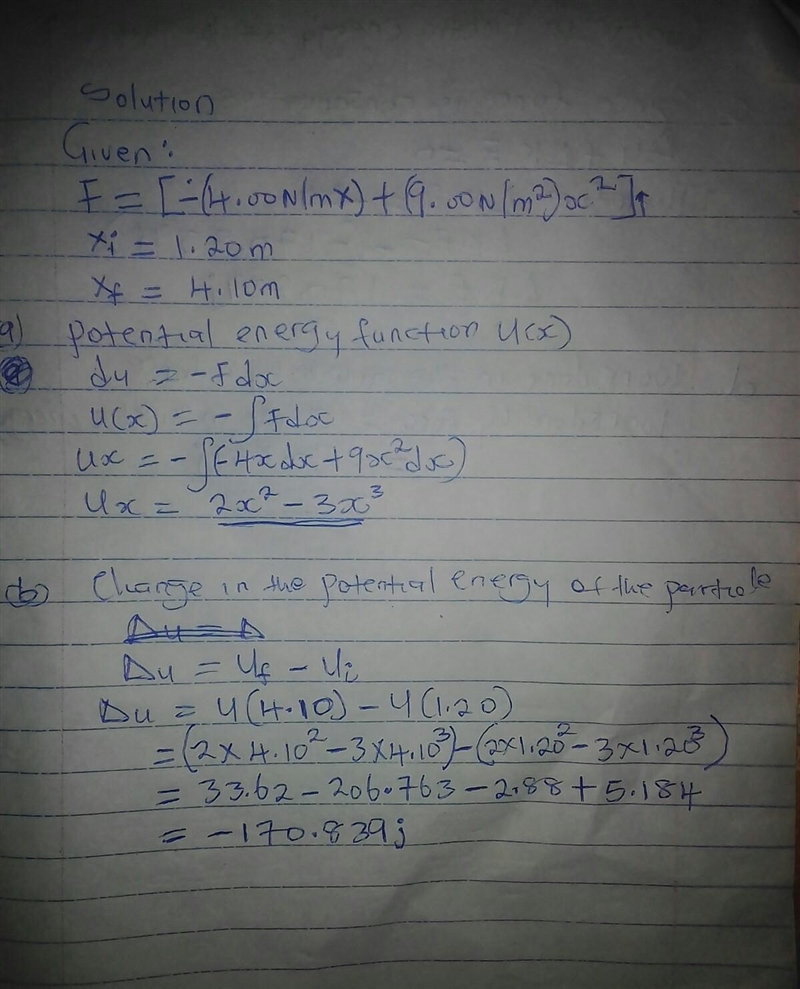 Solution
Given:
F = [-(4.00N/mx) + (9.00N/m²)x²]↑
xi = 1.20m
xf = 4.10m
a) potential energy function U(x)
du = -Fdx
u(x) = -∫Fdx
Ux = -∫(-4xdx+9x²dx)
Ux = 2x² - 3x³
(b) Change in the potential energy of the particle
Δu = Δ
Δu = Uf - Ui
Δu = U(4.10) - U(1.20)
=(2×4.10²-3×4.10³)-(2×1.20²-3×1.20³)
= 33.62 - 206.763 - 2.88 + 5.184
= -170.839j